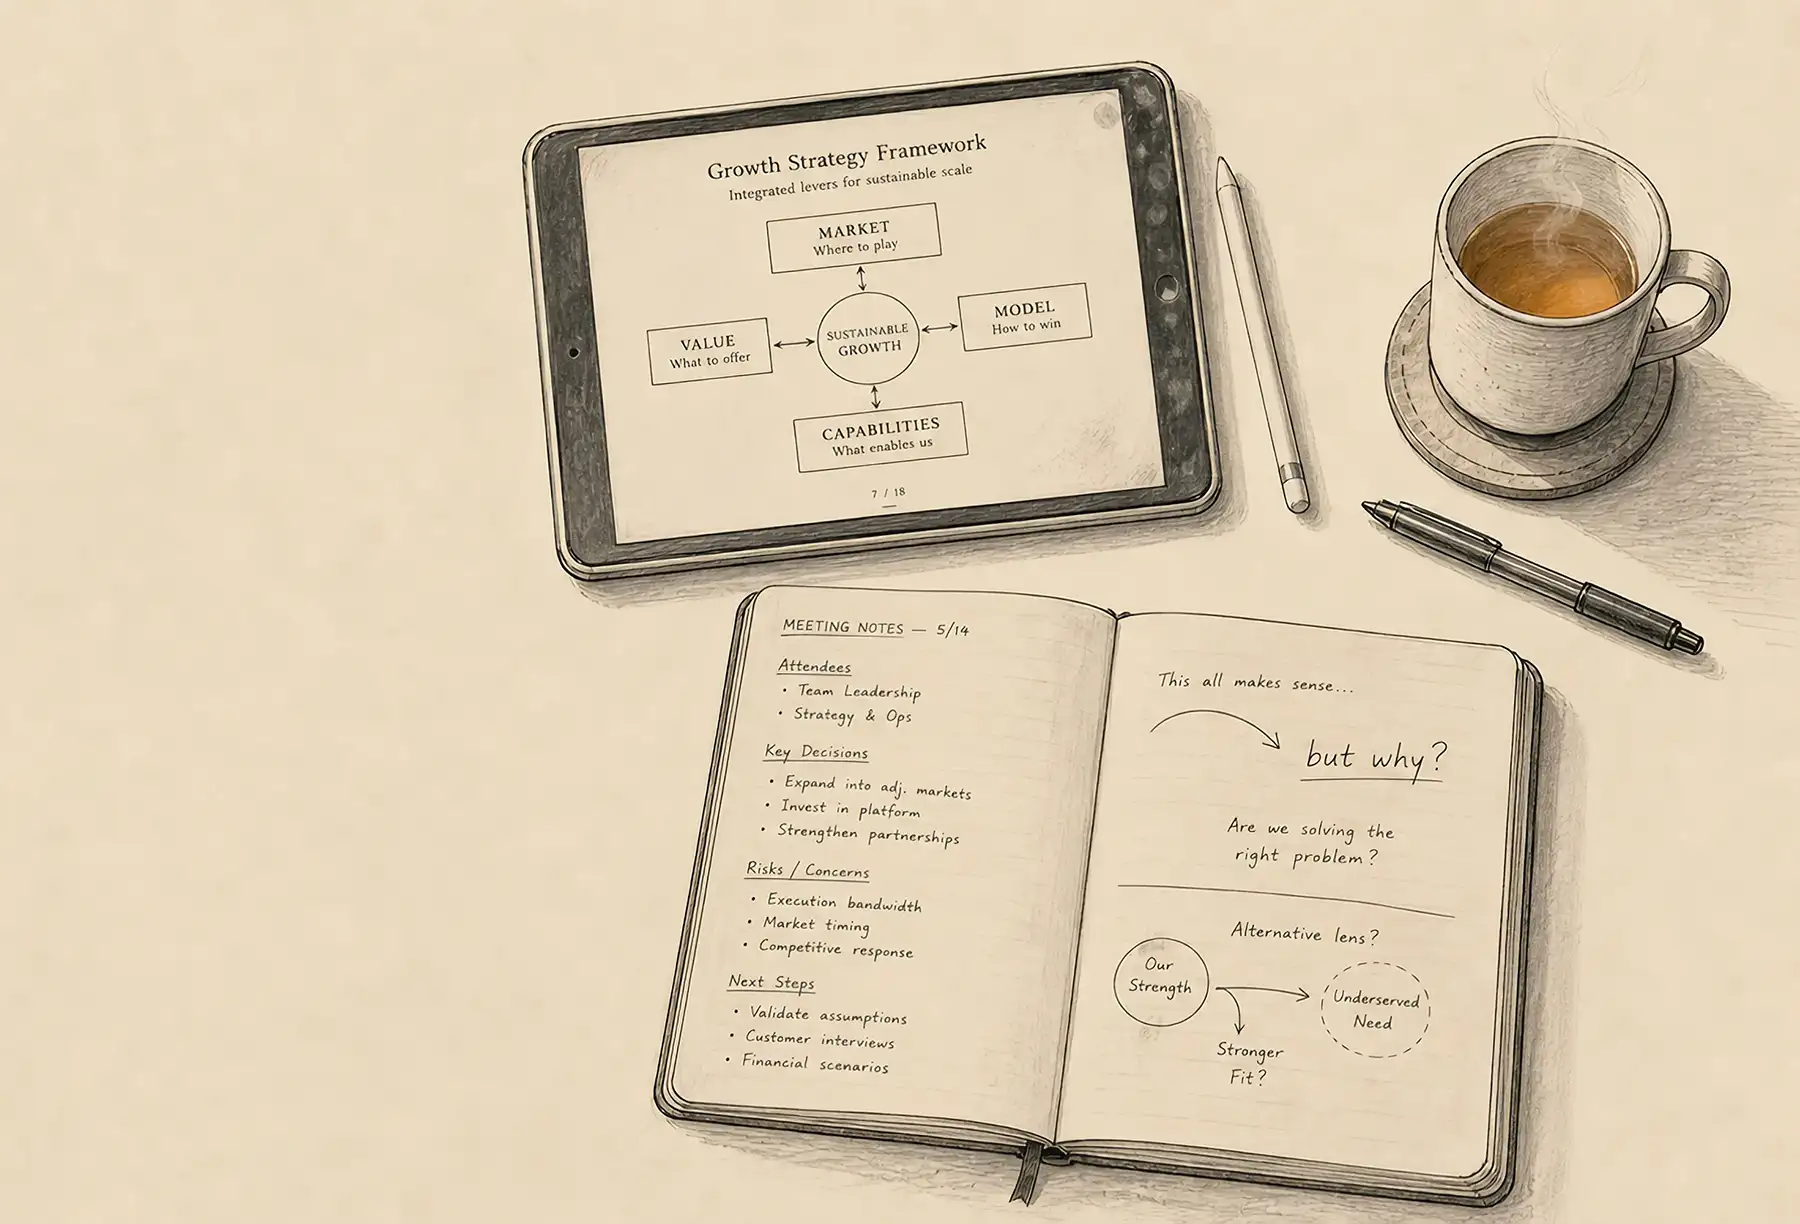 Growth Strategy Framework
Integrated levers for sustainable scale
MARKET
Where to play
VALUE
What to offer
SUSTAINABLE
GROWTH
MODEL
How to win
CAPABILITIES
What enables us
7 / 18
MEETING NOTES — 5/14
Attendees
• Team Leadership
• Strategy & Ops
Key Decisions
• Expand into adj. markets
• Invest in platform
• Strengthen partnerships
Risks / Concerns
• Execution bandwidth
• Market timing
• Competitive response
Next Steps
• Validate assumptions
• Customer interviews
• Financial scenarios
This all makes sense...
but why?
Are we solving the
right problem?
Alternative lens?
Our
Strength
Underserved
Need
Stronger
Fit?